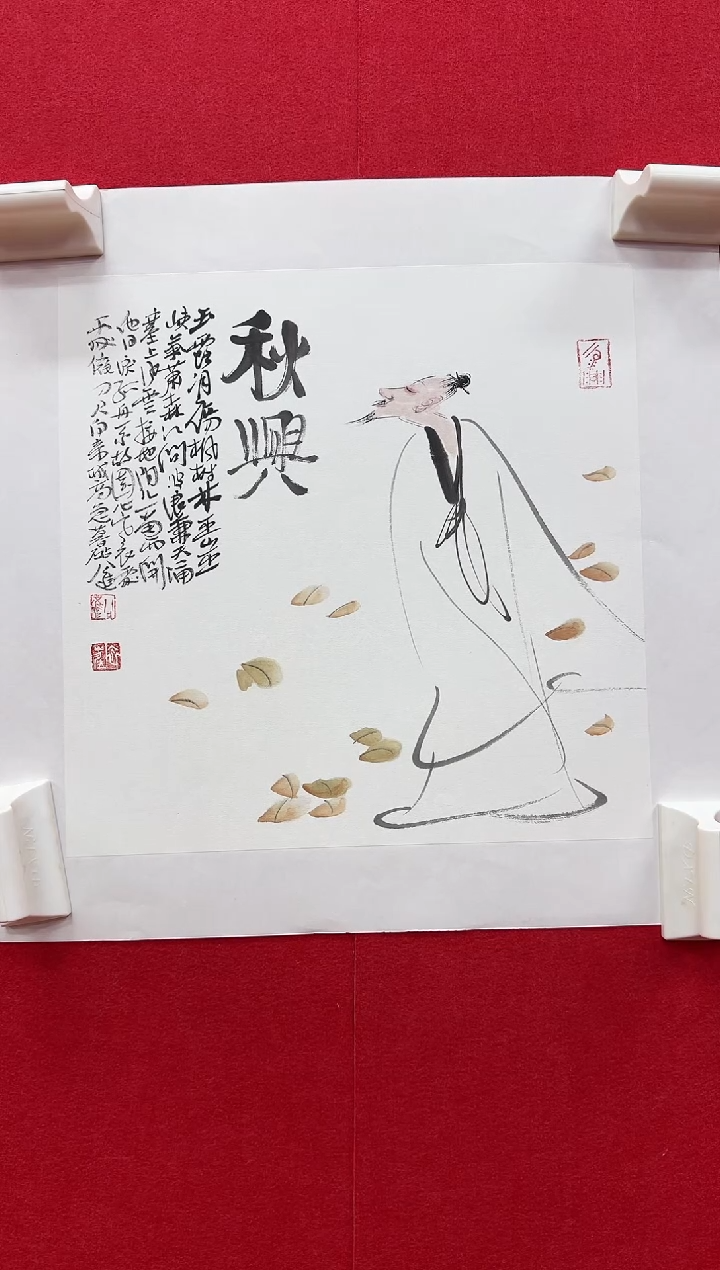 秋興
玉露凋傷楓樹林巫山巫
峽氣蕭森江間波浪兼天涌
塞上風雲接地陰叢菊兩開
他日淚孤舟一系故園心寒衣處
催刀尺白帝城高急暮砧